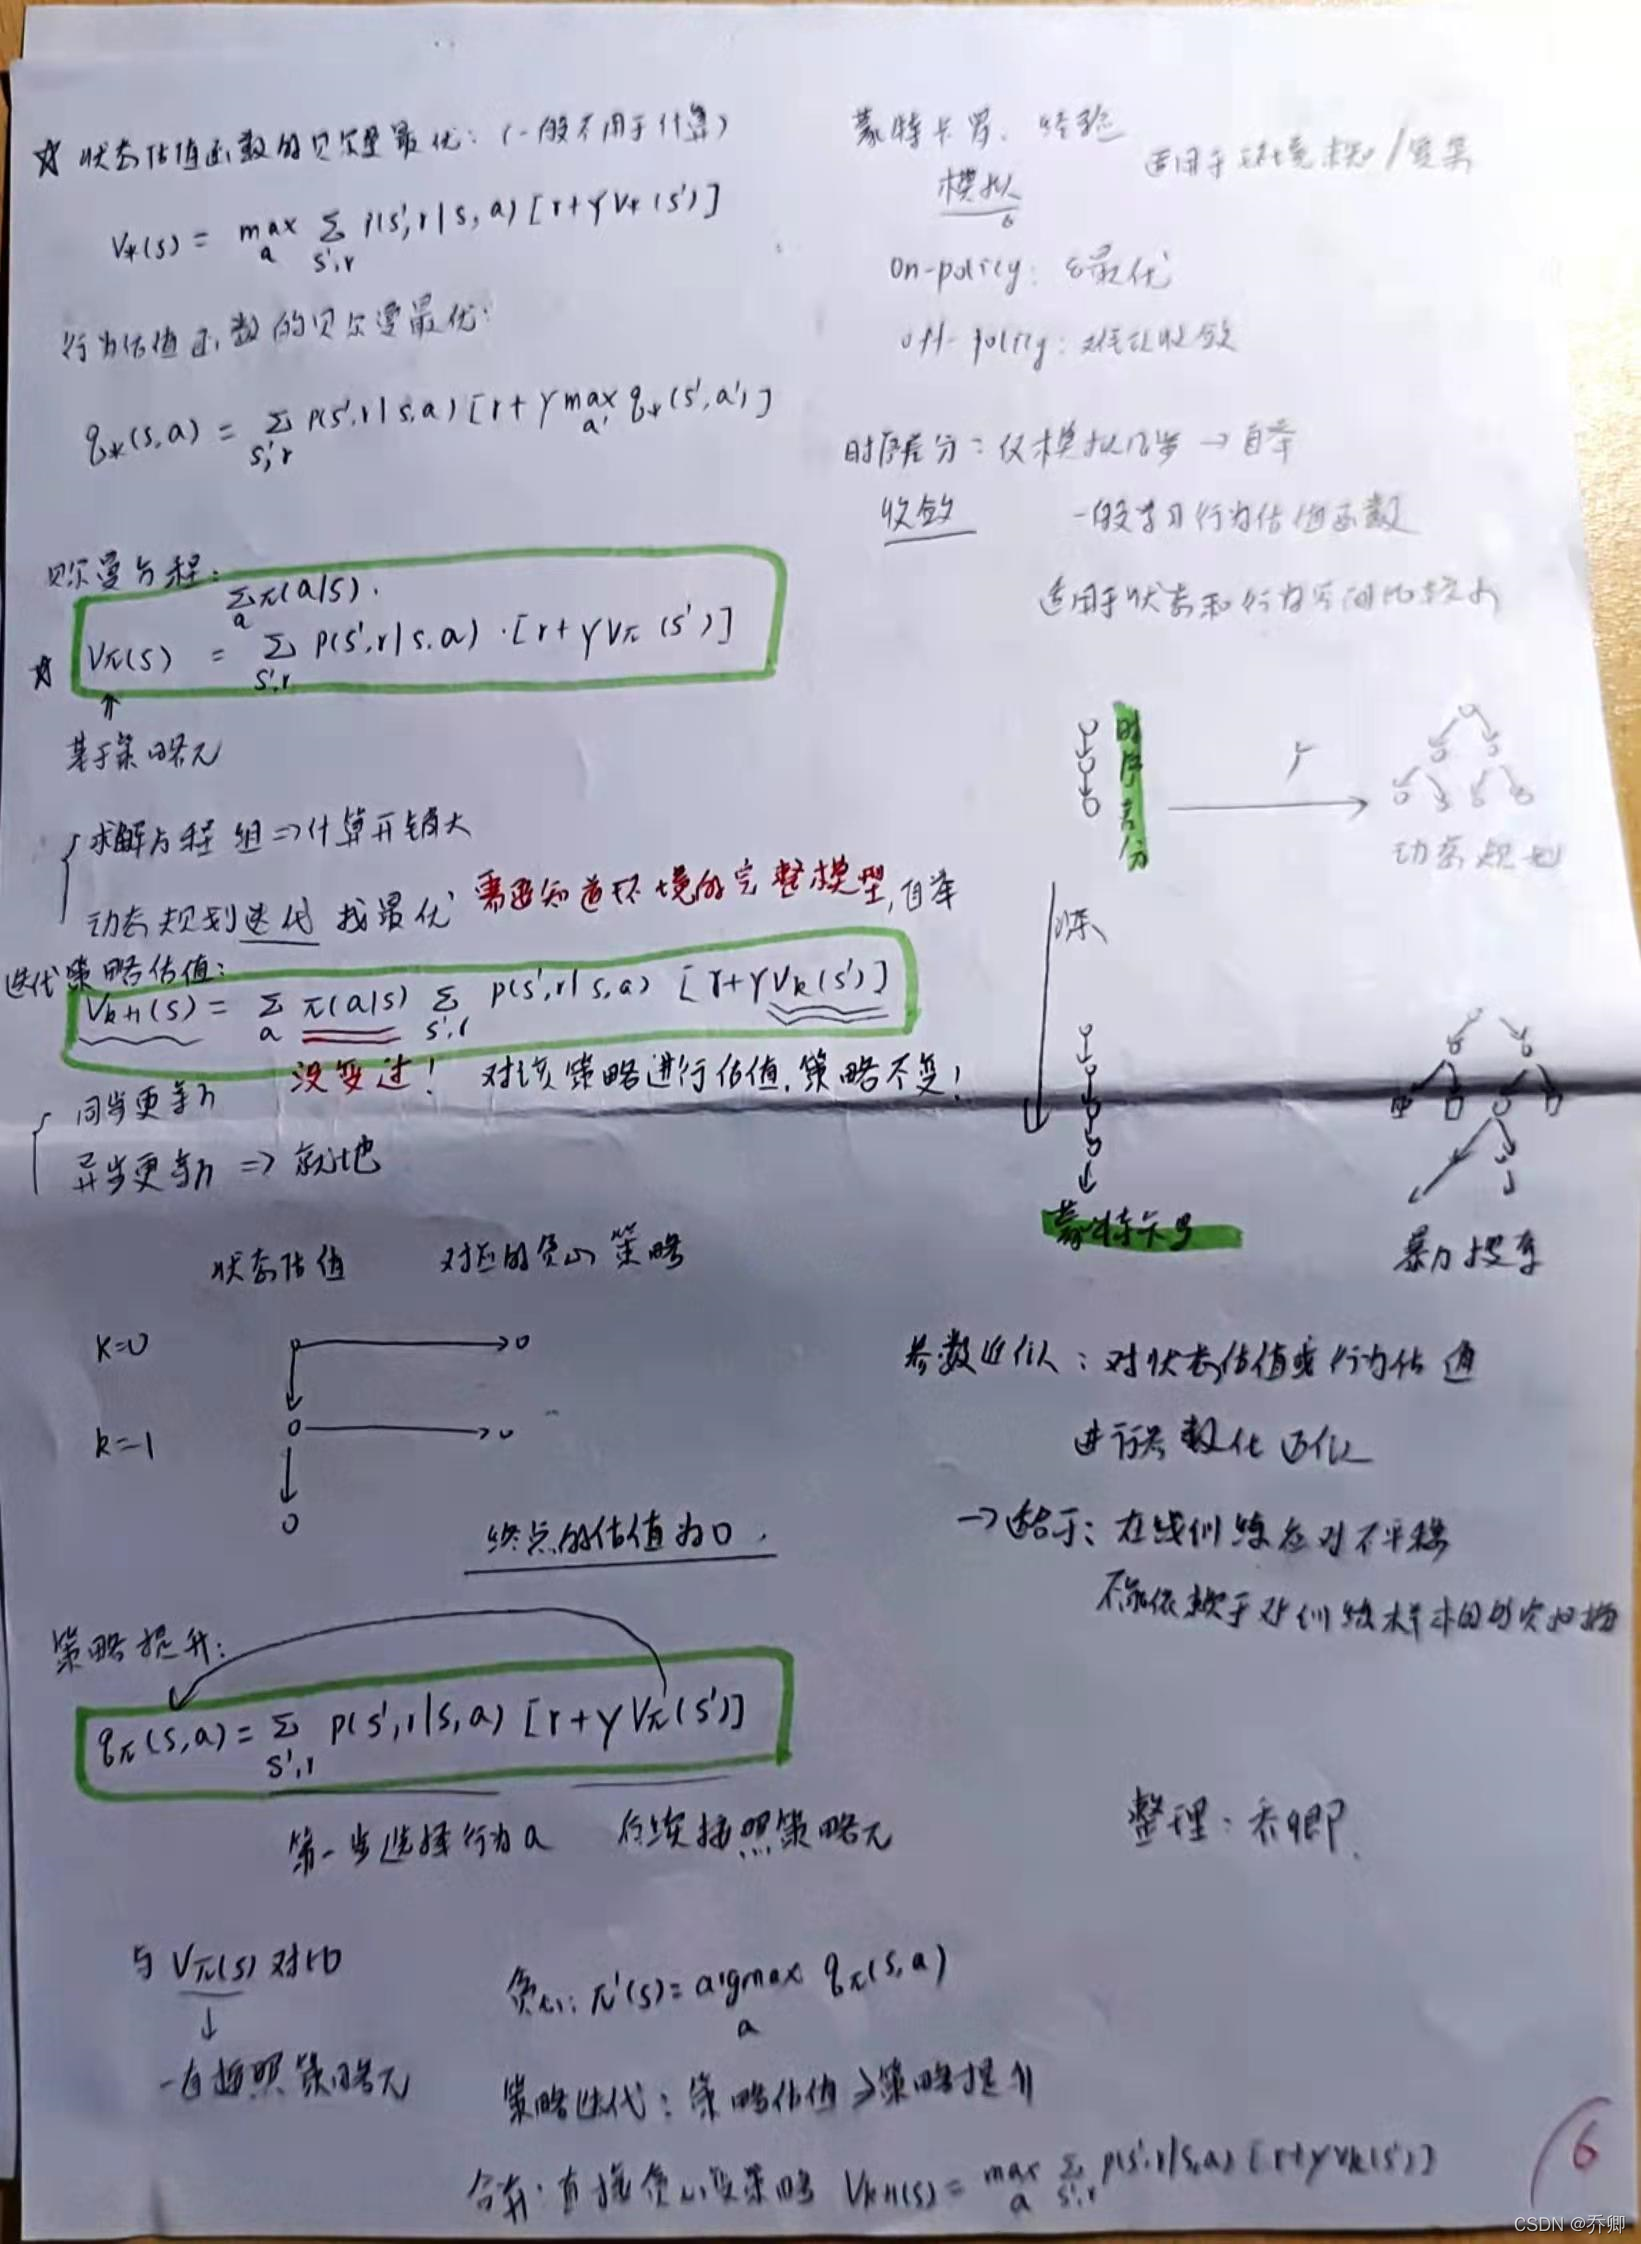 ☆ 状态估值函数的贝尔曼最优：（一般不用于计算）
V*(s) = max_a Σ_{s',r} p(s',r|s,a)[r+γV*(s')]
行为估值函数的贝尔曼最优：
q*(s,a) = Σ_{s',r} p(s',r|s,a)[r+γ max_{a'} q*(s',a')]
贝尔曼方程：
Σ_a π(a|s)·
☆ Vπ(s) = Σ_{s',r} p(s',r|s,a)·[r+γVπ(s')]
↑
基于策略π
求解方程组 => 计算开销大
动态规划迭代 找最优 需要知道环境的完整模型，自举
迭代策略估值：
V_{k+1}(s) = Σ_a π(a|s) Σ_{s',r} p(s',r|s,a) [r+γV_k(s')]
没变过！ 对该策略进行估值，策略不变！
同步更新
异步更新 => 就地
状态估值 对应的贪心策略
k=0
k=1
终点的估值为0.
策略提升：
qπ(s,a) = Σ_{s',r} p(s',r|s,a) [r+γVπ(s')]
第一步选择行为a 后续按照策略π
与Vπ(s)对比
↓
一直按照策略π
贪心：π'(s) = argmax_a qπ(s,a)
策略迭代：策略估值 → 策略提升
合并：直接贪心 策略 V_{k+1}(s) = max_a Σ_{s',r} p(s',r|s,a)[r+γV_k(s')]
蒙特卡罗：经验
模拟
适用于环境未知/复杂
on-policy：ε最优
off-policy：难以收敛
时序差分：仅模拟几步 → 自举
收敛
一般学习行为估值函数
适用于状态和行为空间比较大
时序差分
动态规划
深
蒙特卡罗
暴力搜索
参数近似：对状态估值或行为估值
进行参数化近似
→ 适合于：在线训练应对不平稳
不能依赖于对训练样本的多次扫描
整理：乔卿.
6
CSDN @乔卿